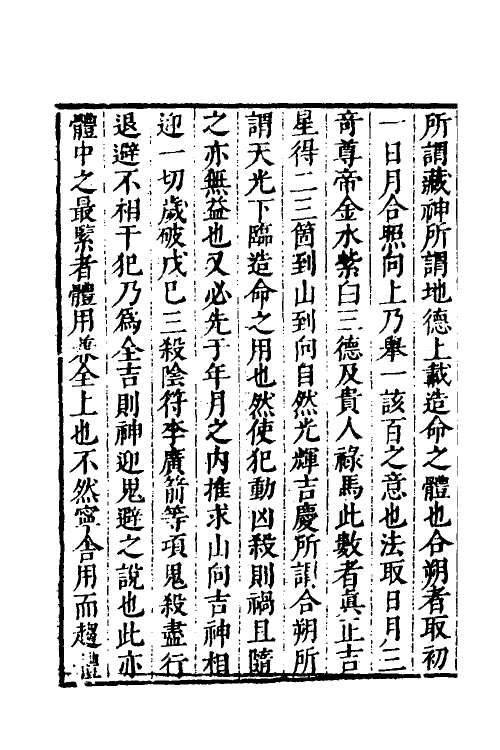 所謂藏神所謂地德上載造命之體也合朔者取初
一日月合照向上乃舉一該百之意也法取日月三
竒尊帝金水紫白三德及貴人祿馬此數者眞正吉
星得二三箇到山到向自然光輝吉慶所謂合朔所
謂天光下臨造命之用也然使犯動凶殺則禍且隨
之亦無益也又必先于年月之内推求山向吉神相
迎一切歲破戊已三殺陰符李廣箭等項鬼殺盡行
退避不相干犯乃爲全吉則神迎鬼避之說也此亦
體中之最緊者體用兼全上也不然寧舍用而趨體